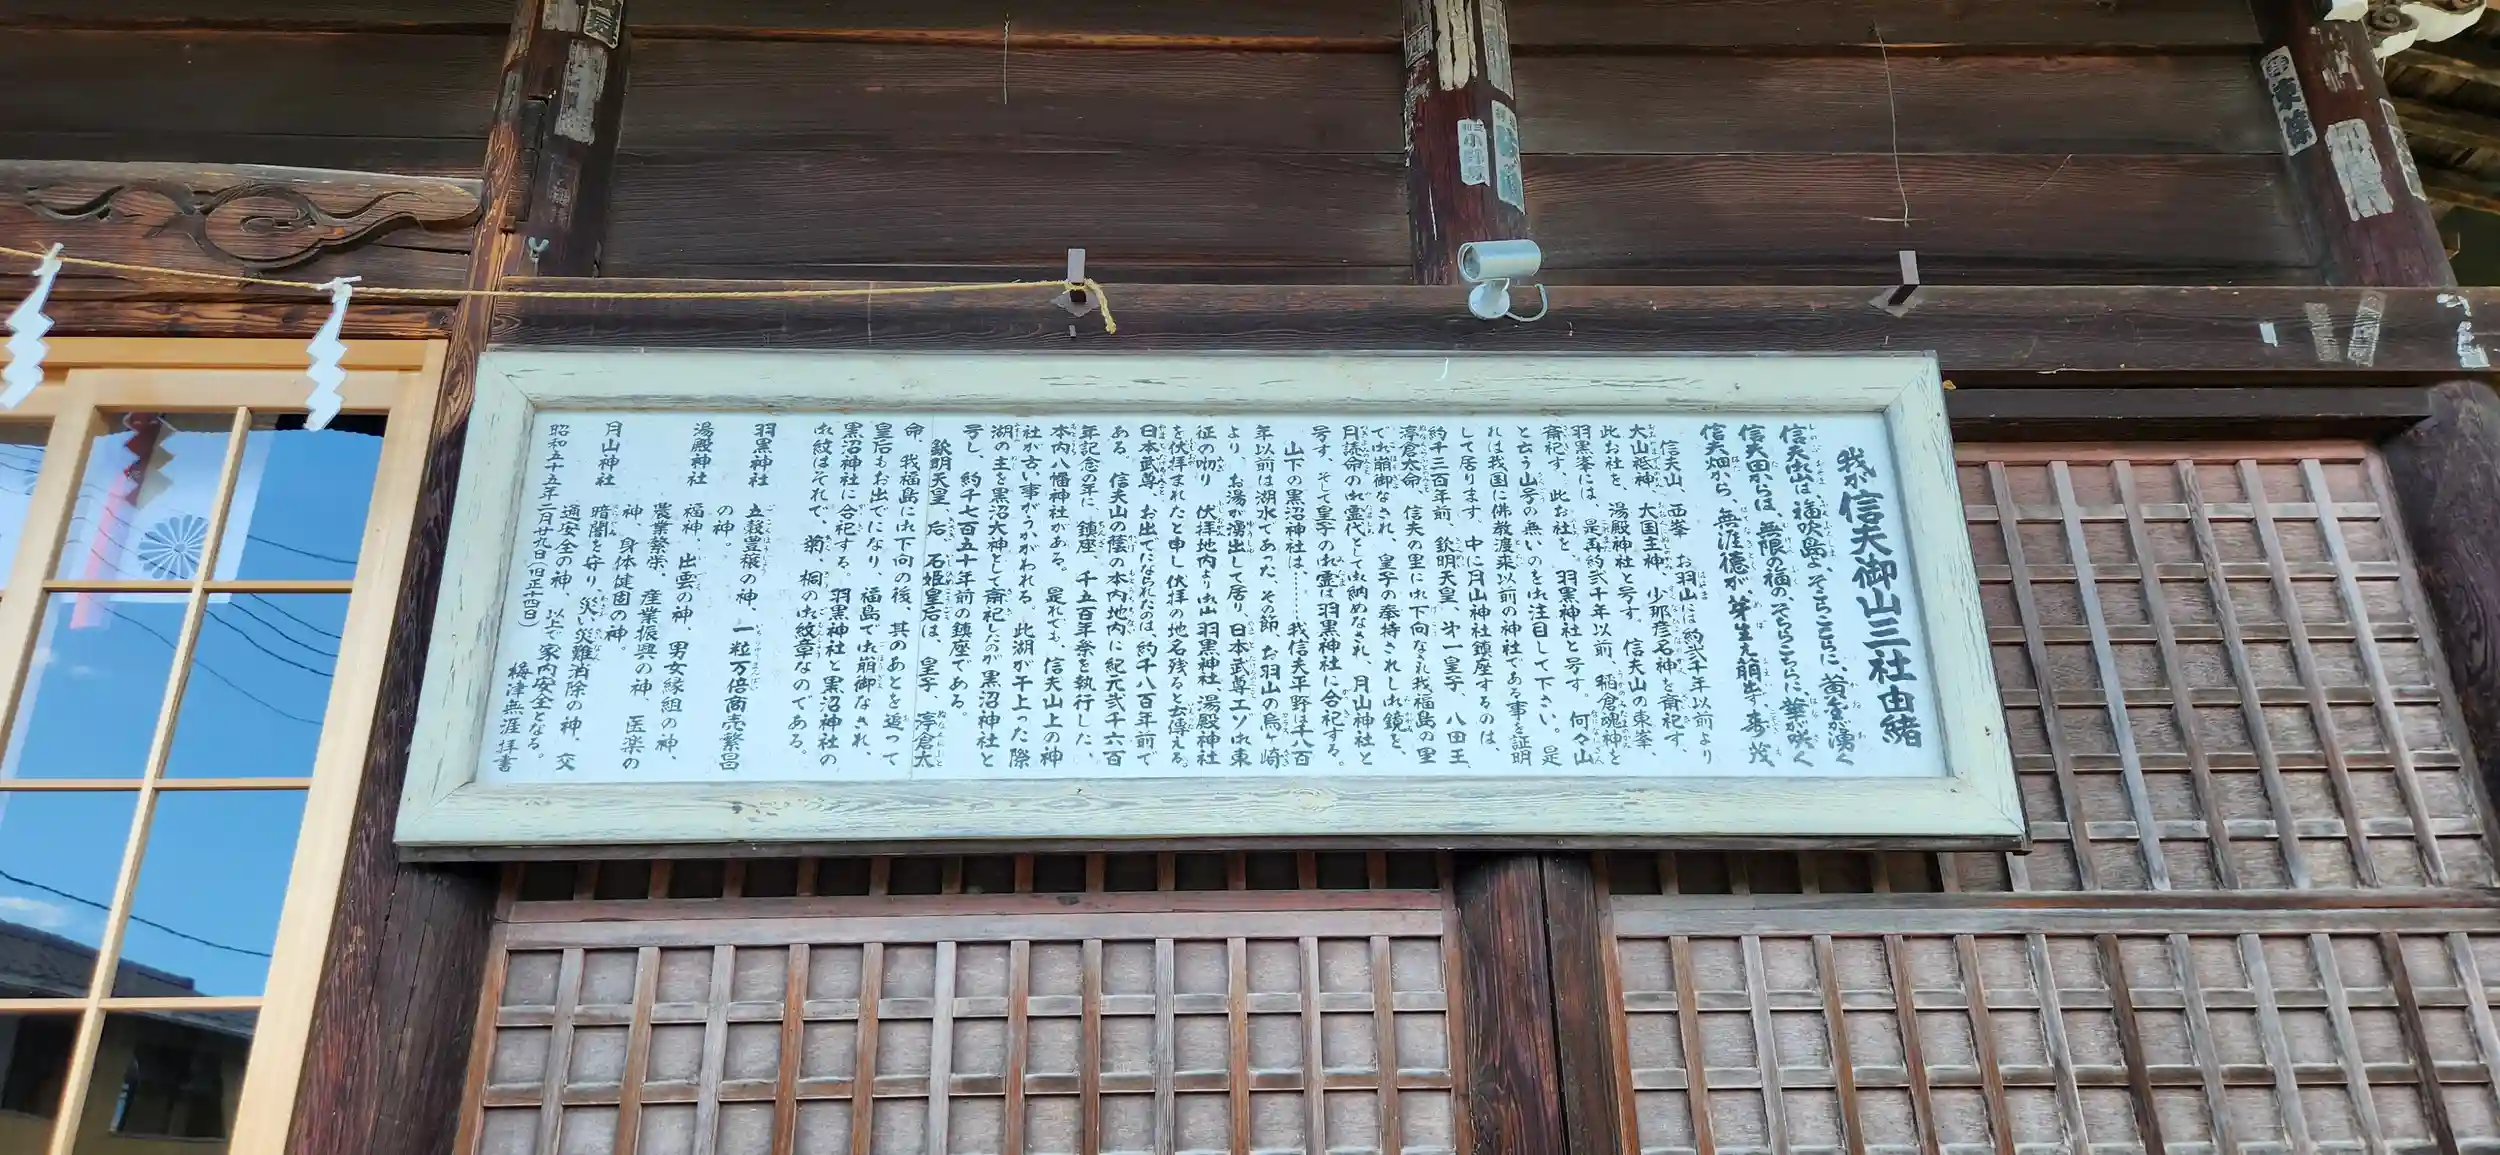 我が信夫御山三社由緒
信夫山は、福吹島よ、そちらこちらに、黄金が湧く
信夫田からは、無限の福の、そちらこちらに、華が咲く
信夫畑から、無涯徳が、芽生え萠出す、寿茂、
信夫山、西峯 お羽山には約弐千年以前より
大山祗神、大国主神、少那彦名神を斎祀す、
此お社を、湯殿神社と号す。信夫山の東峯、
羽黒峯には、是再約弐千年以前、稲倉魂神を
斎祀す、此お社を、羽黒神社と号す。何々山
と云う山号の無いのを御注目して下さい。是
れは我国に佛教渡来以前の神社である事を証明
して居ります、中に月山神社鎮座するのは、
約千三百年前、欽明天皇、㐧一皇子、八田王、
渟倉太命、信夫の里に御下向なされ我福島の里
で御崩御なされ、皇子の奉持されし御鏡を、
月読命の御霊代として御納めなされ、月山神社と
号す、そして皇子の御霊は羽黒神社に合祀する。
山下の黒沼神社は……我信夫平野は千八百
年以前は湖水であった、その節、お羽山の烏ヶ崎
より、お湯が湧出して居り、日本武尊エゾ御東
征の吻り 伏拝地内より御山羽黒神社 湯殿神社
を伏拝まれたと申し伏拝の地名残ると云傳える。
日本武尊、お出でになられたのは、約千八百年前で
ある。信夫山の蔭の本内地内に紀元弐千六百
年記念の年に、鎮座、千五百年祭を執行した、
本内八幡神社がある。是れでも、信夫山上の神
社が古い事がうかがわれる。此湖が干上った際
湖の主を黒沼大神として斎祀したのが黒沼神社と
号し、約千七百五十年前の鎮座である。
欽明天皇、后、石姫皇后は、皇子 渟倉太
命、我福島に御下向の後、其のあとを追って
皇后もお出でになり、福島で御崩御なされ、
黒沼神社に合祀する。羽黒神社と黒沼神社の
御紋はそれで、菊、桐の御紋章なのである。
羽黒神社 五穀豊穣の神、一粒万倍商売繁昌
の神。
湯殿神社 福神、出雲の神、男女縁組の神、
農業繁栄、産業振興の神、医楽の
神、身体健固の神。
月山神社 暗闇を守り、災い災難消除の神、交
通安全の神、以上で家内安全となる。
昭和五十五年二月廿九日(旧正十四日)
梅津無涯拝書